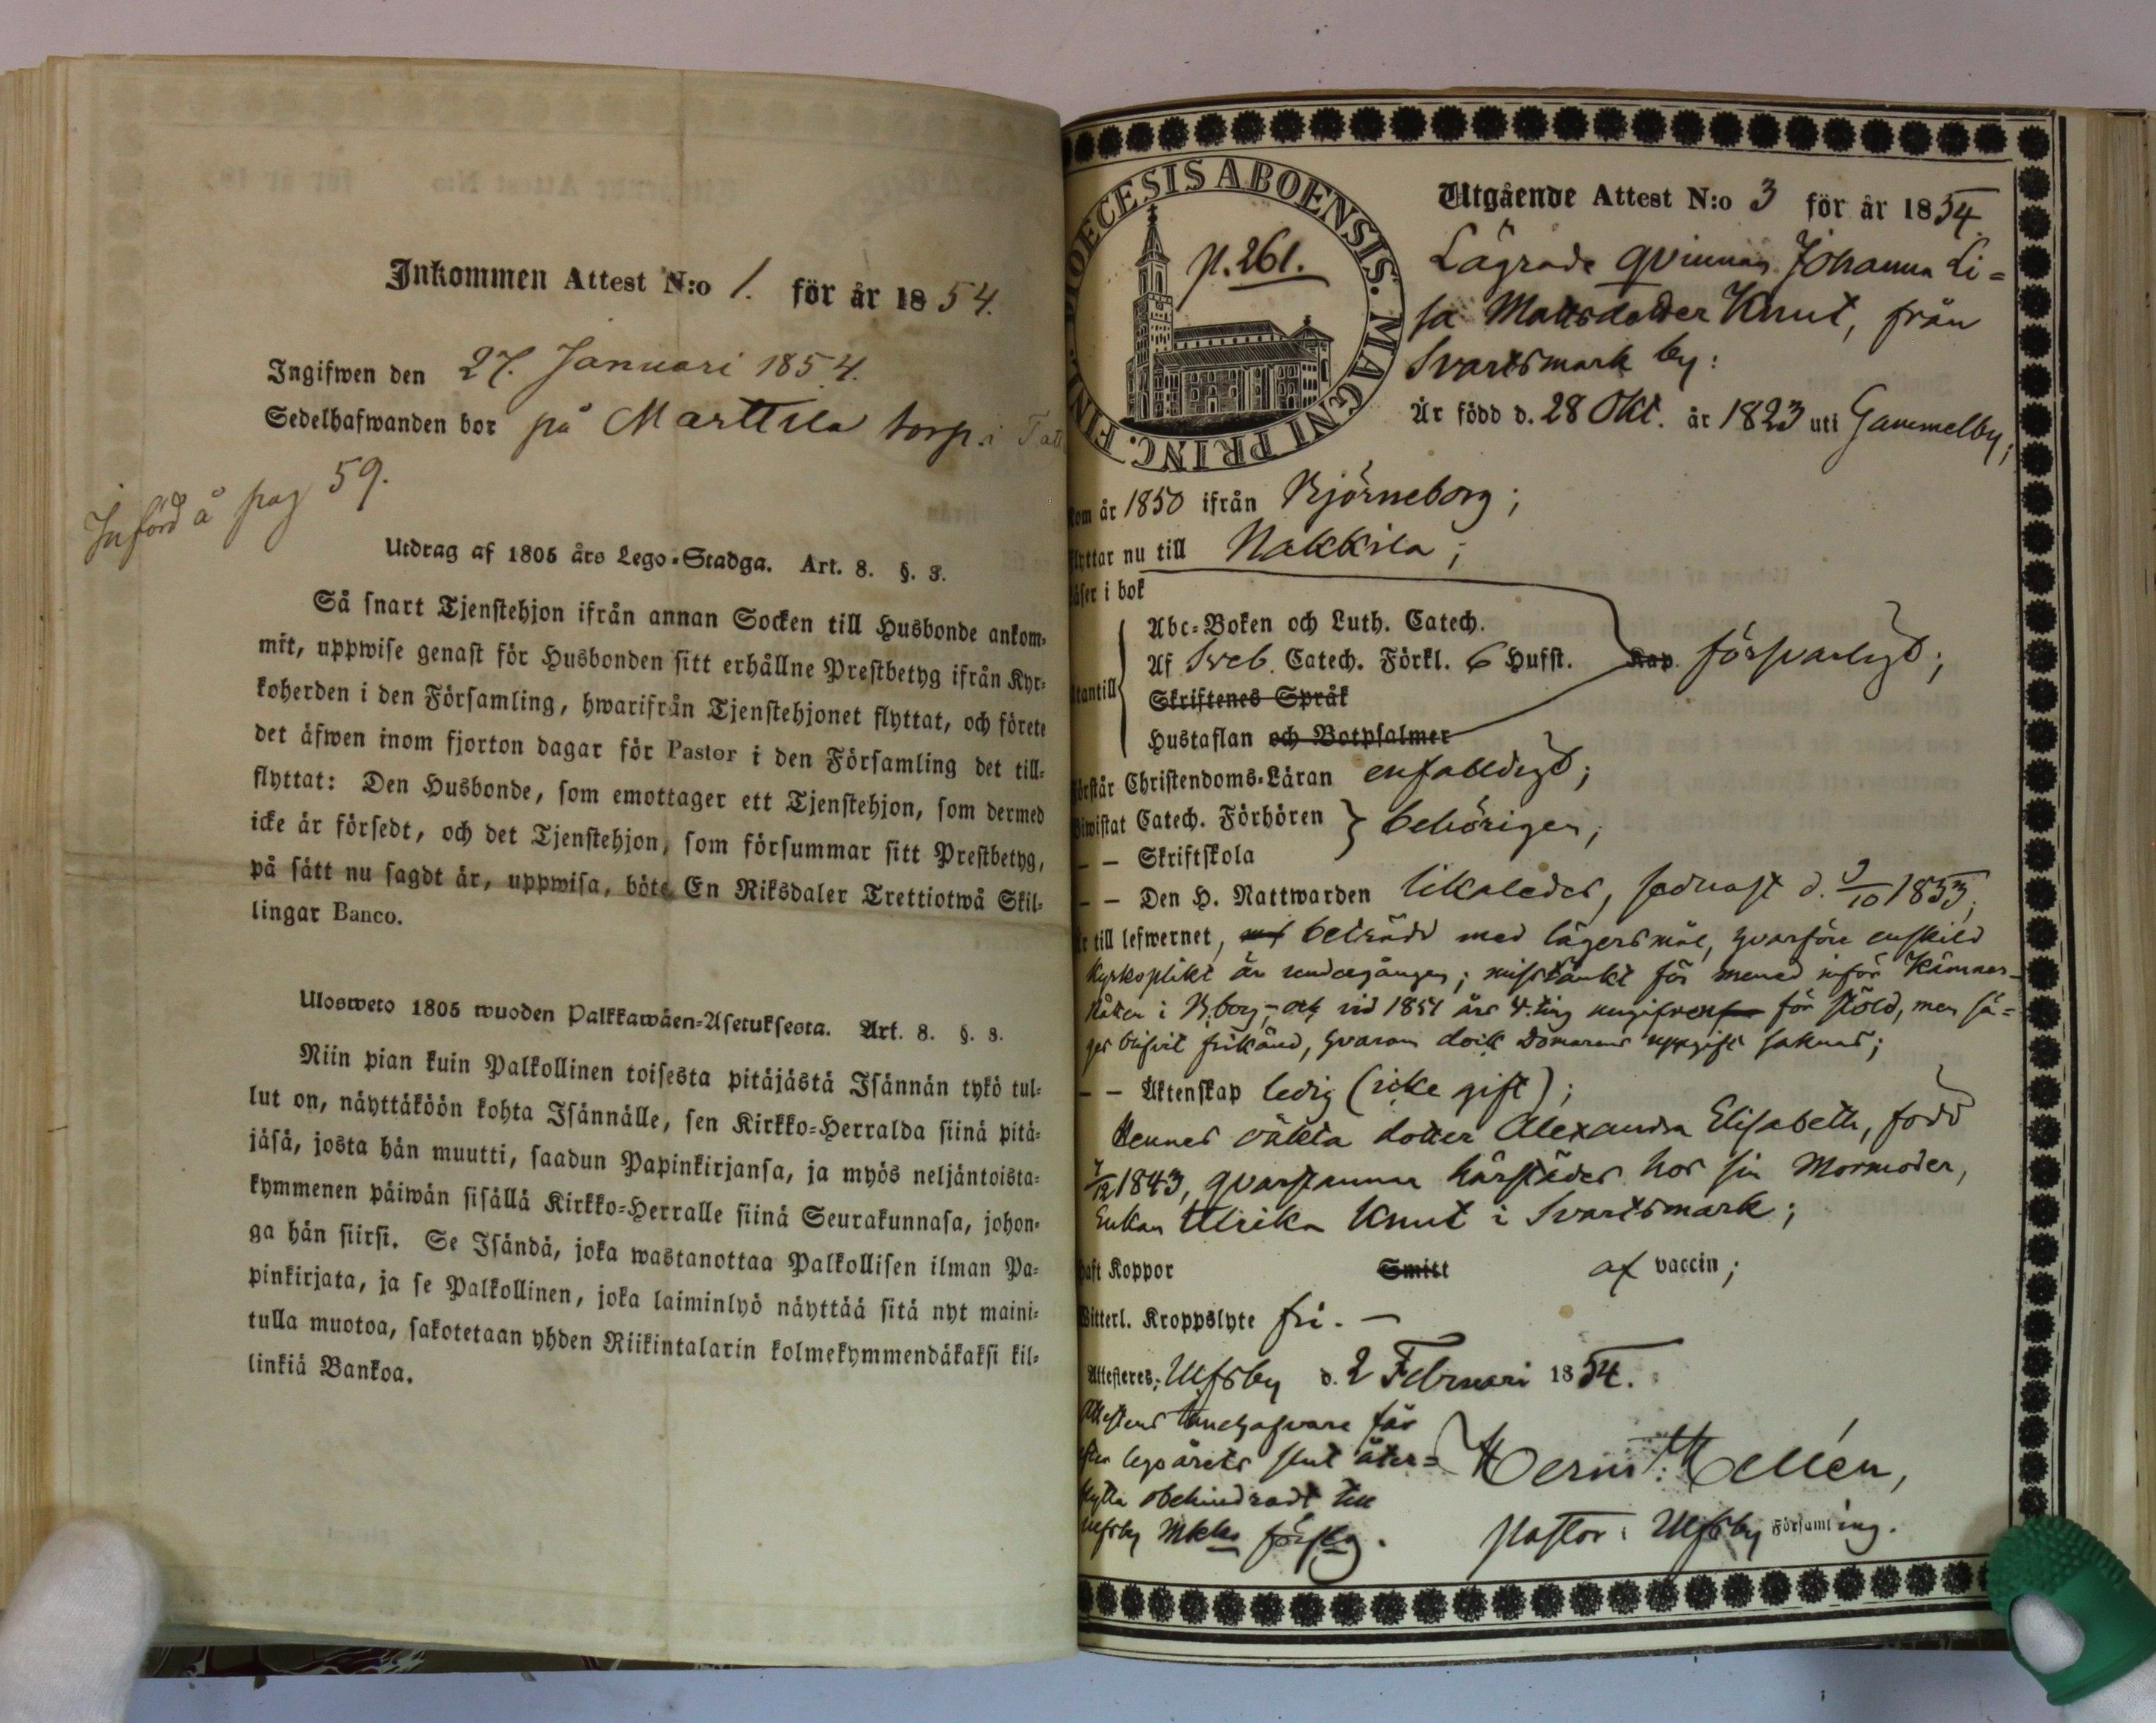 Inkommen Attest N:o 1. för år 1854.
Ingifwen den 27. Januari 1854.
Sedelhafwanden bor på Marttila torp i
Införd å pag 59.
Utdrag af 1805 års Lego-Stadga. Art. 8. §. 3.
Så snart Tjenstehjon ifrån annan Socken till Husbonde ankom-
mit, uppwise genast för Husbonden sitt erhållne Prestbetyg ifrån Kyr-
koherden i den Församling, hwarifrån Tjenstehjonet flyttat, och förete
det äfwen inom fjorton dagar för Pastor i den Församling det till-
flyttat: Den Husbonde, som emottager ett Tjenstehjon, som dermed
icke är försedt, och det Tjenstehjon, som försummar sitt Prestbetyg,
på sätt nu sagdt är, uppwisa, böte En Riksdaler Trettiotwå Skil-
lingar Banco.
Ulosweto 1805 wuoden Palkkawäen-Asetuksesta. Art. 8. §. 3.
Niin pian kuin Palkollinen toisesta pitäjästä Isännän tykö tul-
lut on, näyttäköön kohta Isännälle, sen Kirkko-Herralda siinä pitä-
jäsä, josta hän muutti, saadun Papinkirjansa, ja myös neljäntoista-
kymmenen päiwän sisällä Kirkko-Herralle siinä Seurakunnasa, johon-
ga hän siirsi. Se Isändä, joka wastanottaa Palkollisen ilman Pa-
pinkirjata, ja se Palkollinen, joka laiminlyö näyttää sitä nyt maini-
tulla muotoa, sakotetaan yhden Riikintalarin kolmekymmendäkaksi kil-
linkiä Bankoa.
DIOECESIS ABOENSIS. MAGNI PRINC. FINL.
p. 261.
Utgående Attest N:o 3 för år 1854.
Lägrade qvinnan Johanna Li-
sa Mattsdotter Knut, från
Svartsmark by:
Är född d. 28 Okt. år 1823 uti Gammelby;
kom år 1850 ifrån Björneborg;
flyttar nu till Nakkila;
läser i bok
Abc-Boken och Luth. Catech.
Af Sveb. Catech. Förkl. 6 Hufst. Kap. försvarligt;
utantill
Skriftenes Språk
Hustaflan och Botpsalmer
förstår Christendoms-Läran enfalldigt;
biwistat Catech. Förhören } behörigen;
– – Skriftskola
– – Den H. Nattwarden likaledes, sednast d. 9/10 1853;
är till lefwernet, beträdd med lägersmål, hvarföre enskild
kyrkoplikt är undergången; misstänkt för mened inför Kämners-
Rätten i B.borg, och vid 1851 års ting angifven för stöld, men sä-
ges blifvit frikänd, hvarom dock Domarens uppgift saknas;
– – Äktenskap ledig (icke gift);
Hennes oäkta dotter Alexandra Elisabeth, född
7/12 1843, qvarstannar härstädes hos sin Mormoder,
Enkan Ulrika Knut i Svartsmark;
haft Koppor Smitt af vaccin;
Witterl. Kroppslyte fri. –
Attesteres; Ulfsby d. 2 Februari 1854.
Attestens innehafvare får
efter legoårets slut åter-
flytta obehindradt till
Ulfsby
Herm: Hellén,
Pastor i Ulfsby Församling.